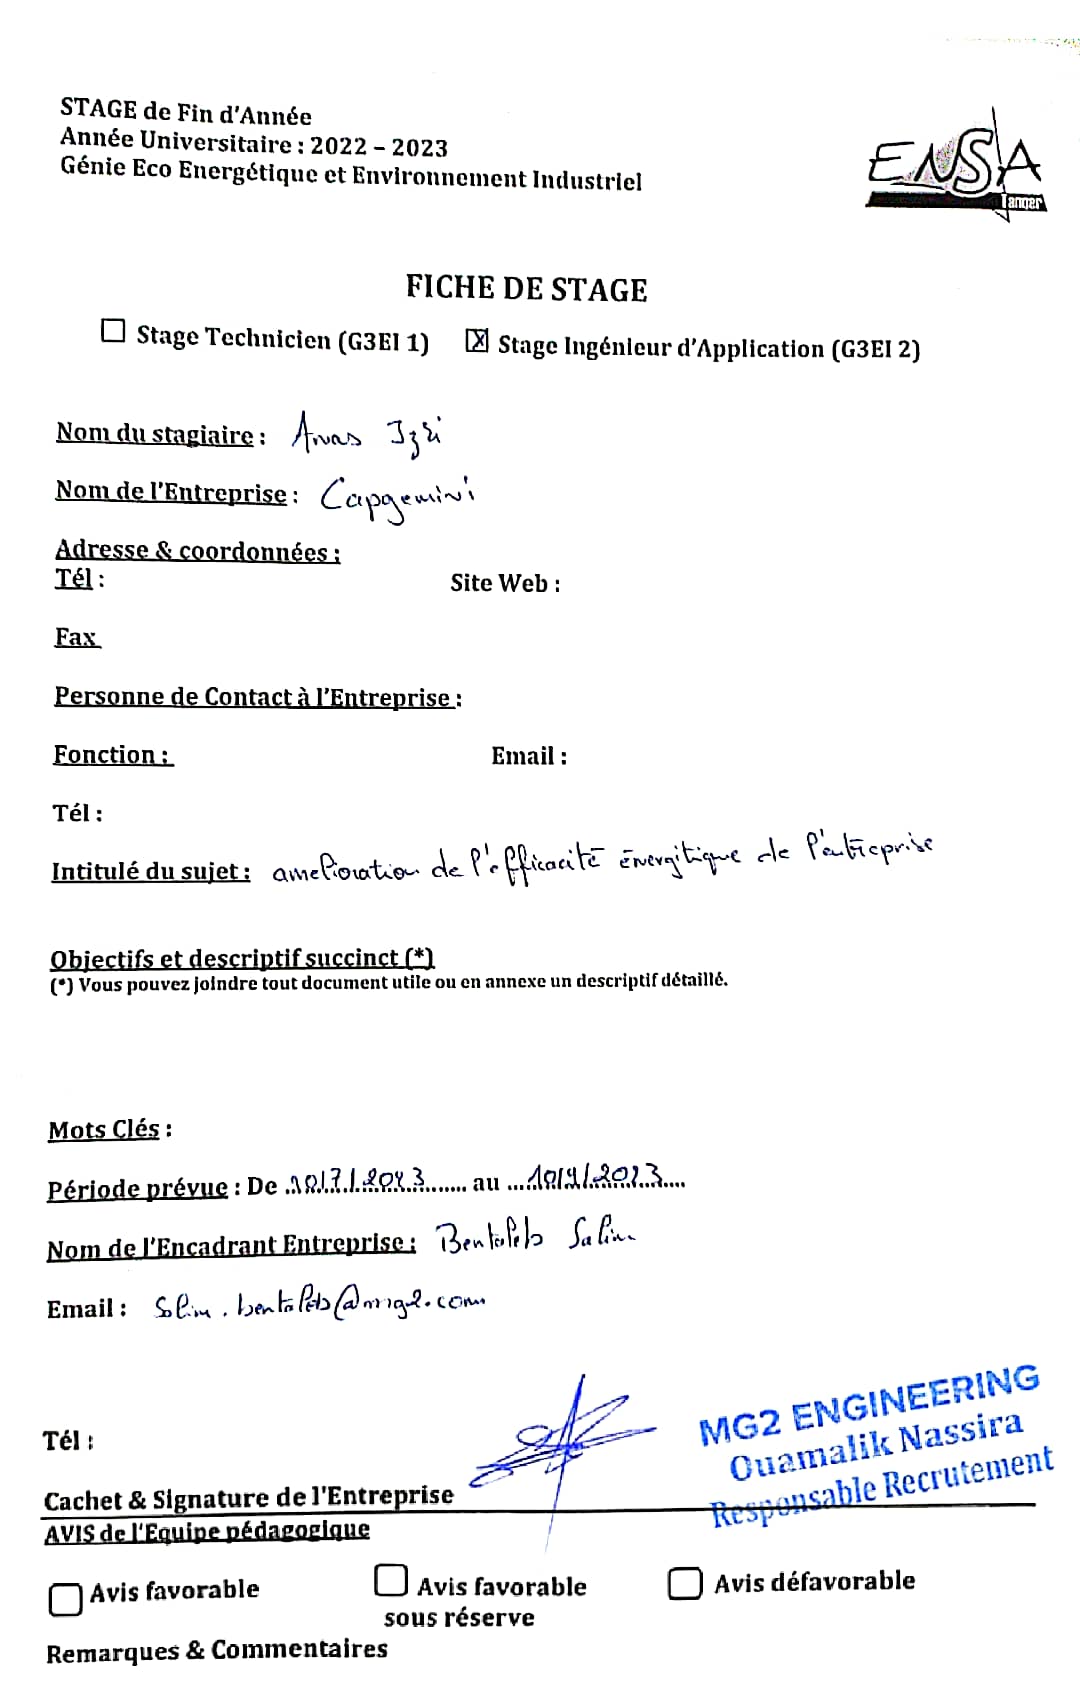 STAGE de Fin d'Année
Année Universitaire : 2022 – 2023
Génie Eco Energétique et Environnement Industriel
ENSA
Tanger
FICHE DE STAGE
Stage Technicien (G3EI 1) X Stage Ingénieur d'Application (G3EI 2)
Nom du stagiaire : Anas Izri
Nom de l'Entreprise : Capgemini
Adresse & coordonnées :
Tél : Site Web :
Fax
Personne de Contact à l'Entreprise :
Fonction : Email :
Tél :
Intitulé du sujet : amelioration de l'efficacité énergitique de l'entreprise
Objectifs et descriptif succinct (*)
(*) Vous pouvez joindre tout document utile ou en annexe un descriptif détaillé.
Mots Clés :
Période prévue : De au
Nom de l'Encadrant Entreprise : Bentaleb Salim
Email : Salim.bentaleb@mg2.com
Tél :
MG2 ENGINEERING
Ouamalik Nassira
Responsable Recrutement
Cachet & Signature de l'Entreprise
AVIS de l'Equipe pédagogique
Avis favorable Avis favorable Avis défavorable
sous réserve
Remarques & Commentaires